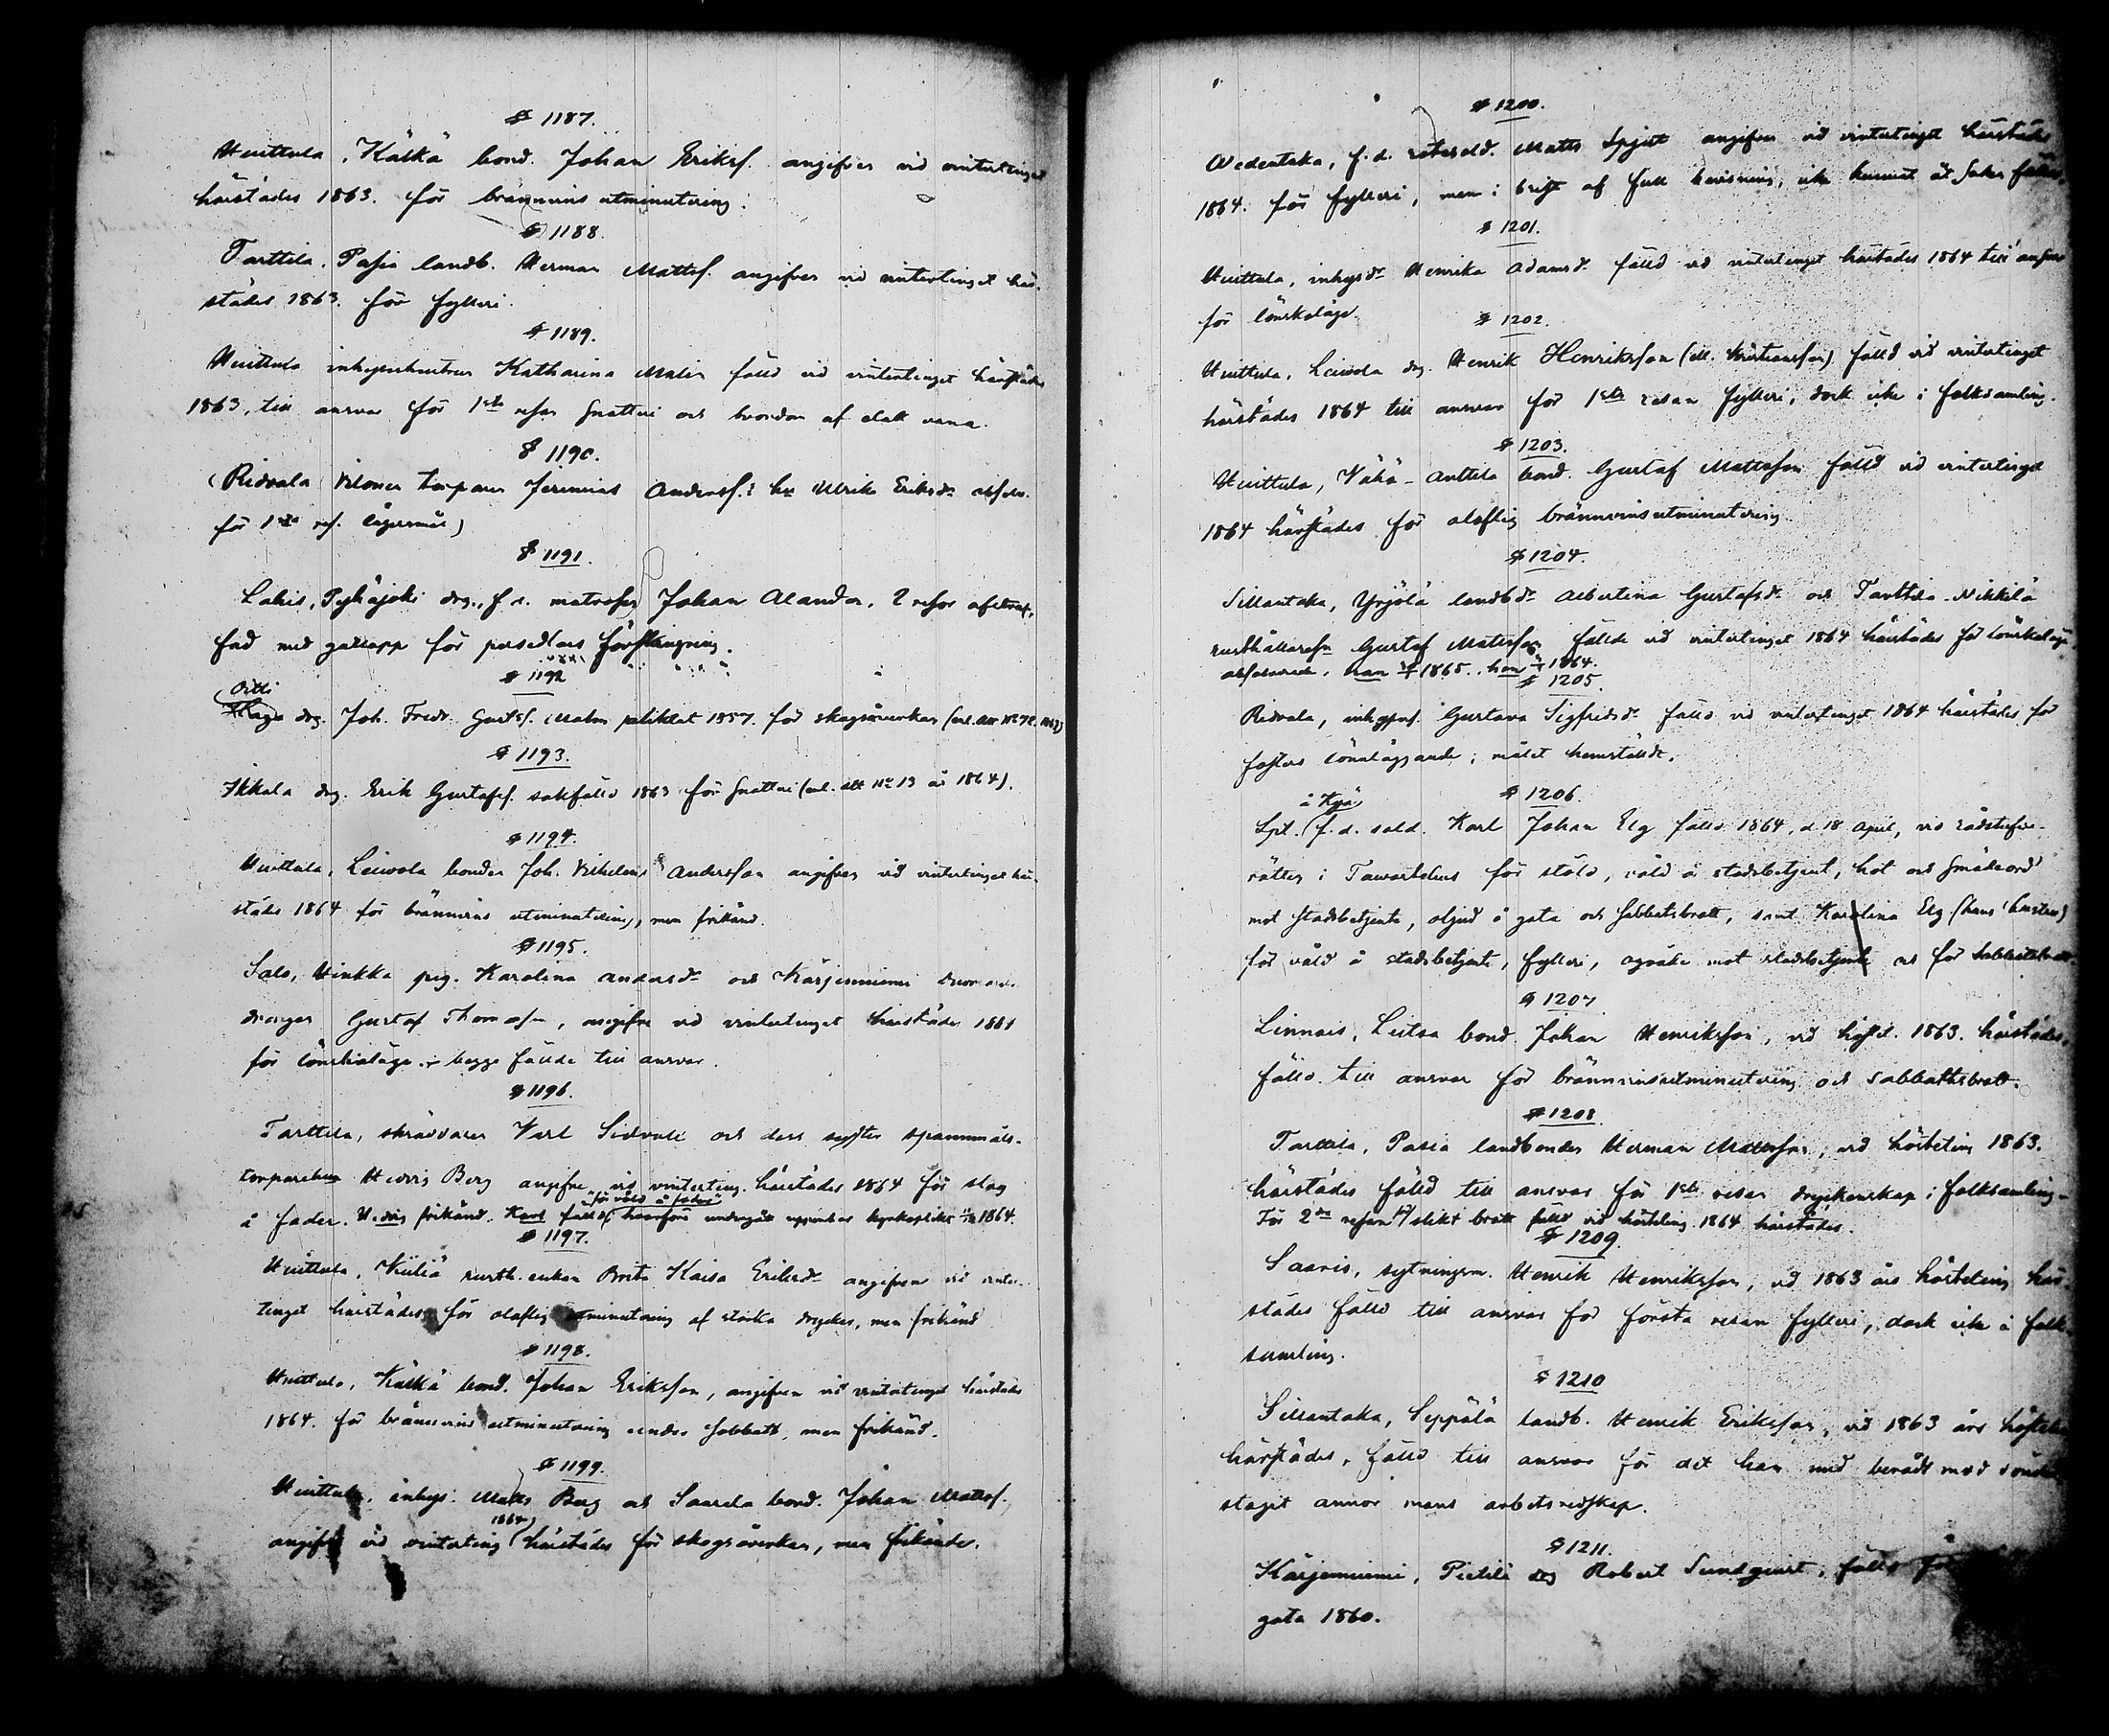 § 1187.
Huittula, Kälkä bond. Johan Eriksf. angifves vid vintertinget
härstädes 1863. för brännvins utminutering.
§ 1188.
Tarttila, Pasia landb. Herman Mattsf. angifves vid vintertinget här-
städes 1863. för fylleri.
§ 1189.
Huittula inhyseshustrun Katharina Malin fälld vid vintertinget härstädes
1863, till ansvar för 1sta resan snatteri och bevordom af elak vana.
§ 1190.
(Ridvala torparen Jeremias Andersf. Ulrika Eriksdr
för 1sta res. lägersmål)
§ 1191.
Lahis, Pyhäjoki drg., f.d. matrosen Johan Alander, 2 resor afstraf-
fad med gatlopp för persedlars förskingring.
§ 1192
Otti
drg. Joh. Fredr. Gustfs. Malm pliktat 1857. för skogsåverkan
§ 1193.
Ikkala drg. Erik Gustafsf. sakfälld 1863 för snatteri (enl. att No 13 år 1864).
§ 1194.
Huittula, Leivola bonden Joh. Vilhelm Andersson angifves vid vintertinget här-
städes 1864 för brännvins utminutering, men frikänd.
§ 1195.
Salo, Hinkka pig. Karolina Andersdr och Kärjenniemi
drängen Gustaf Thomasson, angifne vid vintertinget härstädes 1861
för lönskaläge. begge fällde till ansvar.
§ 1196.
Tarttila, skräddaren Karl Sidvall och dess
torparen Henrik Berg angifne vid vinterting. härstädes 1864 för slag
"för våld å fader"
å fader. Henrik frikänd. Karl fälld, hvarföre undergått uppenbar kyrkoplikt 1864.
§ 1197.
Huittula, rusth. enkan Brita Kaisa Eriksdr angifven vid vinter-
tinget härstädes för olaflig utminutering af starka drycker, men frikänd
§ 1198.
Huittula, Kälkä bond. Johan Eriksson, angifven vid vintertinget härstädes
1864. för brännvins utminutering under sabbath, men frikänd.
§ 1199.
Huittula, inhys. Matts Berg och Saarela bond. Johan Mattsf.
1864
angifne vid vinterting härstädes för skogsåverkan, men frikände.
§ 1200.
Wedentaka, f.d. Matts Spjut angifven vid vintertinget härstädes
1864. för fylleri, men i brist af full bevisning, icke kunnat åt saken fällas.
§ 1201.
Huittula, inhysdr Henrika Adamsdr fälld vid vintertinget härstädes 1864 till ansvar
för lönskeläge.
§ 1202.
Huittula, Leivola drg. Henrik Henriksson (ell. Kristiansson) fälld vid vintertinget
härstädes 1864 till ansvar för 1sta resan fylleri, dock icke i folksamling.
§ 1203.
Huittula, Vähä-Anttila bond. Gustaf Mattsson fälld vid vintertinget
1864 härstädes för olaflig brännvinsutminutering.
§ 1204.
Sillantaka, Yrjölä landbdr Albertina Gustafsdr och Tarttila-Nikkilä
rusthållaresn Gustaf Mattsson fällde vid vintertinget 1864 härstädes för lönskeläge
absolverade. han 1865. hon 1864.
§ 1205.
Ridvala, inhyspig. Gustava Sigfridsdr fälld vid vintertinget 1864 härstädes för
fosters lönnläggande; målet hemstäldt.
§ 1206.
å Kyä
Spl. f.d. sold. Karl Johan Elg fälld 1864, d. 18 April, vid rådstufvu-
rätten i Tavastehus för stöld, våld å stadsbetjent, hot och smädeord
mot stadsbetjente, oljud å gata och sabbatsbrott, samt Karolina Elg (hans hustru)
för våld å stadsbetjente, fylleri, ogväde mot stadsbetjente och för sabbatsbrott.
§ 1207
Linnais, Leitsa bond. Johan Henriksson, vid höstet. 1863. härstädes,
fälld till ansvar för brännvinsutminutering och sabbathsbrott.
§ 1208.
Tarttila, Pasia landbonden Herman Mattsson, vid hösteting 1863.
härstädes fälld till ansvar för 1sta resan dryckenskap i folksamling.
För 2dra resan slikt brott fälld vid hösteting 1864 härstädes.
§ 1209.
Saaris, sytningsm. Henrik Henriksson, vid 1863 års hösteting här-
städes fälld till ansvar för första resan fylleri, dock icke i folk-
samling.
§ 1210
Sillantaka, Seppälä landb. Henrik Eriksson, vid 1863 års hösteting
härstädes, fälld till ansvar för det han med berådt mod sönder-
slaget annor mans arbetsredskap.
§ 1211.
Kärjenniemi, Pietilä drg Robert Sundqvist, fälld för
gata 1860.